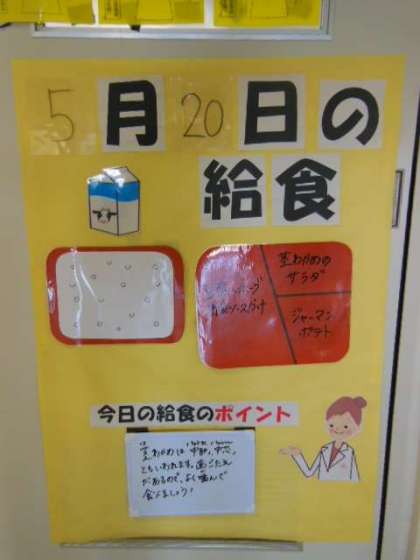 5月20日の
給食
茎わかめの
サラダ
ソースがけ
ジャーマン
ポテト
今日の給食のポイント
茎わかめは
ともいわれます。歯ごたえ
があるので、よく噛んで
食べましょう!